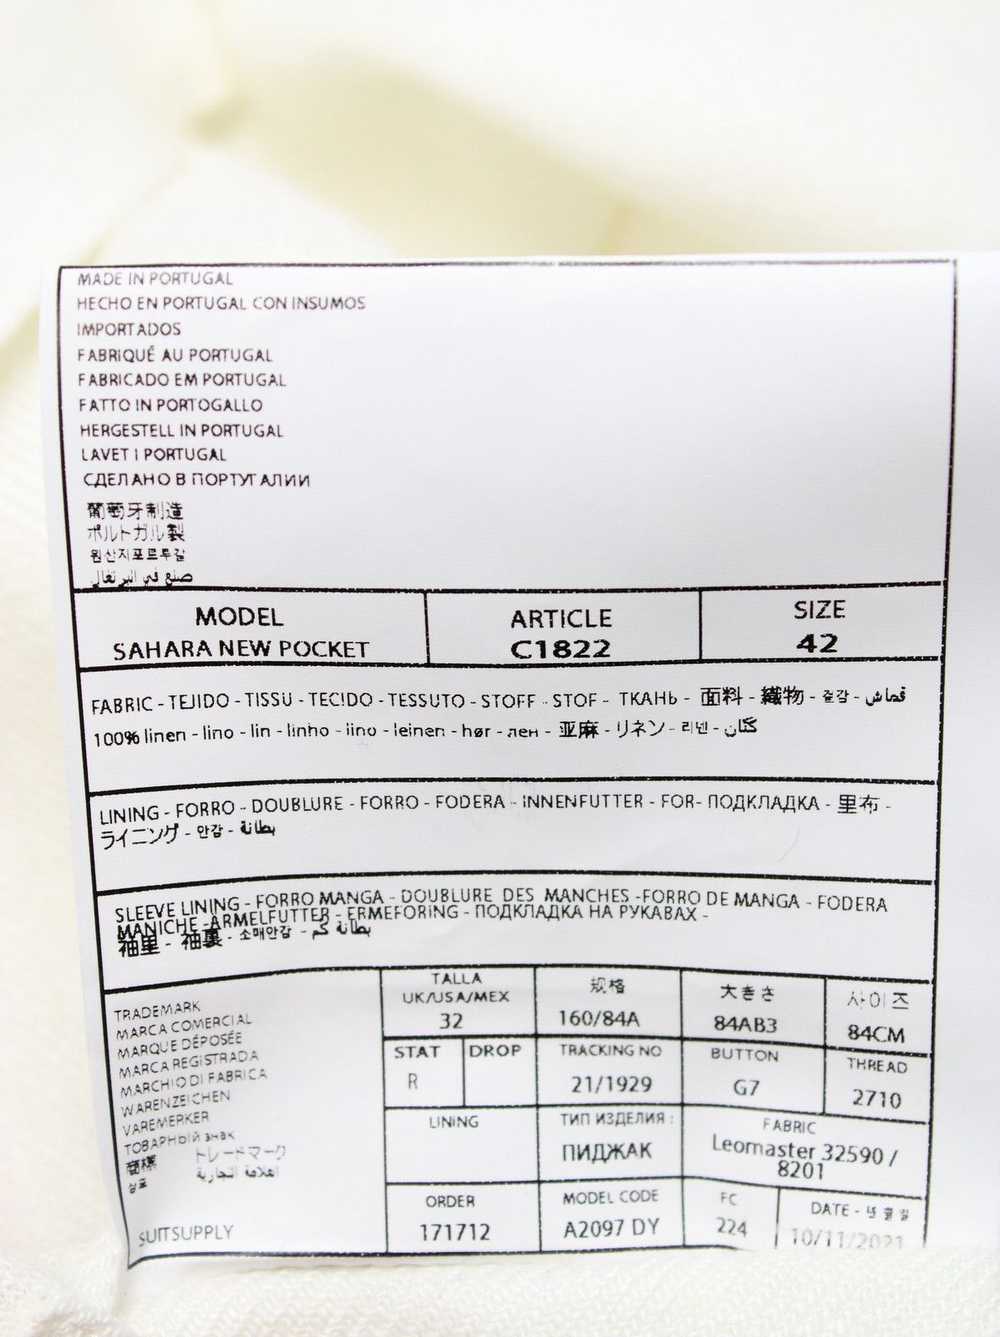 MADE IN PORTUGAL
HECHO EN PORTUGAL CON INSUMOS
IMPORTADOS
FABRIQUÉ AU PORTUGAL
FABRICADO EM PORTUGAL
FATTO IN PORTOGALLO
HERGESTELL IN PORTUGAL
LAVET I PORTUGAL
СДЕЛАНО В ПОРТУГАЛИИ
葡萄牙制造
ポルトガル製
원산지포르투갈
صنع في البرتغال
MODEL
SAHARA NEW POCKET
ARTICLE
C1822
SIZE
42
FABRIC - TEJIDO - TISSU - TECIDO - TESSUTO - STOFF - STOF - ТКАНЬ - 面料 - 織物 - 겉감 - قماش
100% linen - lino - lin - linho - lino - leinen - hør - лен - 亚麻 - リネン - 리넨 - كتان
LINING - FORRO - DOUBLURE - FORRO - FODERA - INNENFUTTER - FOR- ПОДКЛАДКА - 里布 -
ライニング - 안감 - بطانة
SLEEVE LINING - FORRO MANGA - DOUBLURE DES MANCHES -FORRO DE MANGA - FODERA
MANICHE -ARMELFUTTER - ERMEFORING - ПОДКЛАДКА НА РУКАВАХ -
袖里 - 袖裏 - 소매안감 - بطانة كم
TRADEMARK
MARCA COMERCIAL
MARQUE DÉPOSÉE
MARCA REGISTRADA
MARCHIO DI FABRICA
WARENZEICHEN
VAREMERKER
ТОВАРНЫЙ знак
商標 トレードマーク
상표 العلامة التجارية
SUITSUPPLY
TALLA
UK/USA/MEX
32
规格
160/84A
大きさ
84AB3
사이즈
84CM
STAT
R
DROP
TRACKING NO
21/1929
BUTTON
G7
THREAD
2710
LINING
ТИП ИЗДЕЛИЯ :
ПИДЖАК
FABRIC
Leomaster 32590 /
8201
ORDER
171712
MODEL CODE
A2097 DY
FC
224
DATE - 년 월 일
10/11/2021